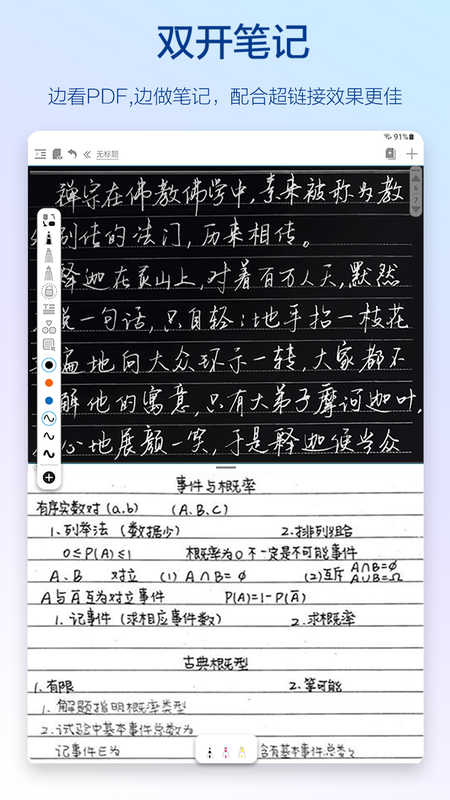 双开笔记
边看PDF,边做笔记，配合超链接效果更佳
91%
无标题
6
7
禅宗在佛教佛学中,素来被称为教
别传的法门,历来相传。
释迦在灵山上,对着百万人天,默然
说一句话,只自轻轻地手拈一枝花
遍地向大众环示一转,大家都不
解他的寓意,只有大弟子摩诃迦叶,
心地展颜一笑,于是释迦便当众
事件与概率
有序实数对(a,b) (A.B.C)
1.列举法(数据少) 2.排列组合
0≤P(A)≤1 概率为0不一定是不可能事件
A、B 对立 (1) A∩B=ϕ (2)互斥 A∩B=ϕ A∪B=Ω
A与A̅互为对立事件 P(A)=1-P(A̅)
1.记事件(求相应事件数) 2.求概率
古典概型
1.有限 2.等可能
1.解题指明概率类型
2.试验中基本事件总数为
记事件E为 含有基本事件总数